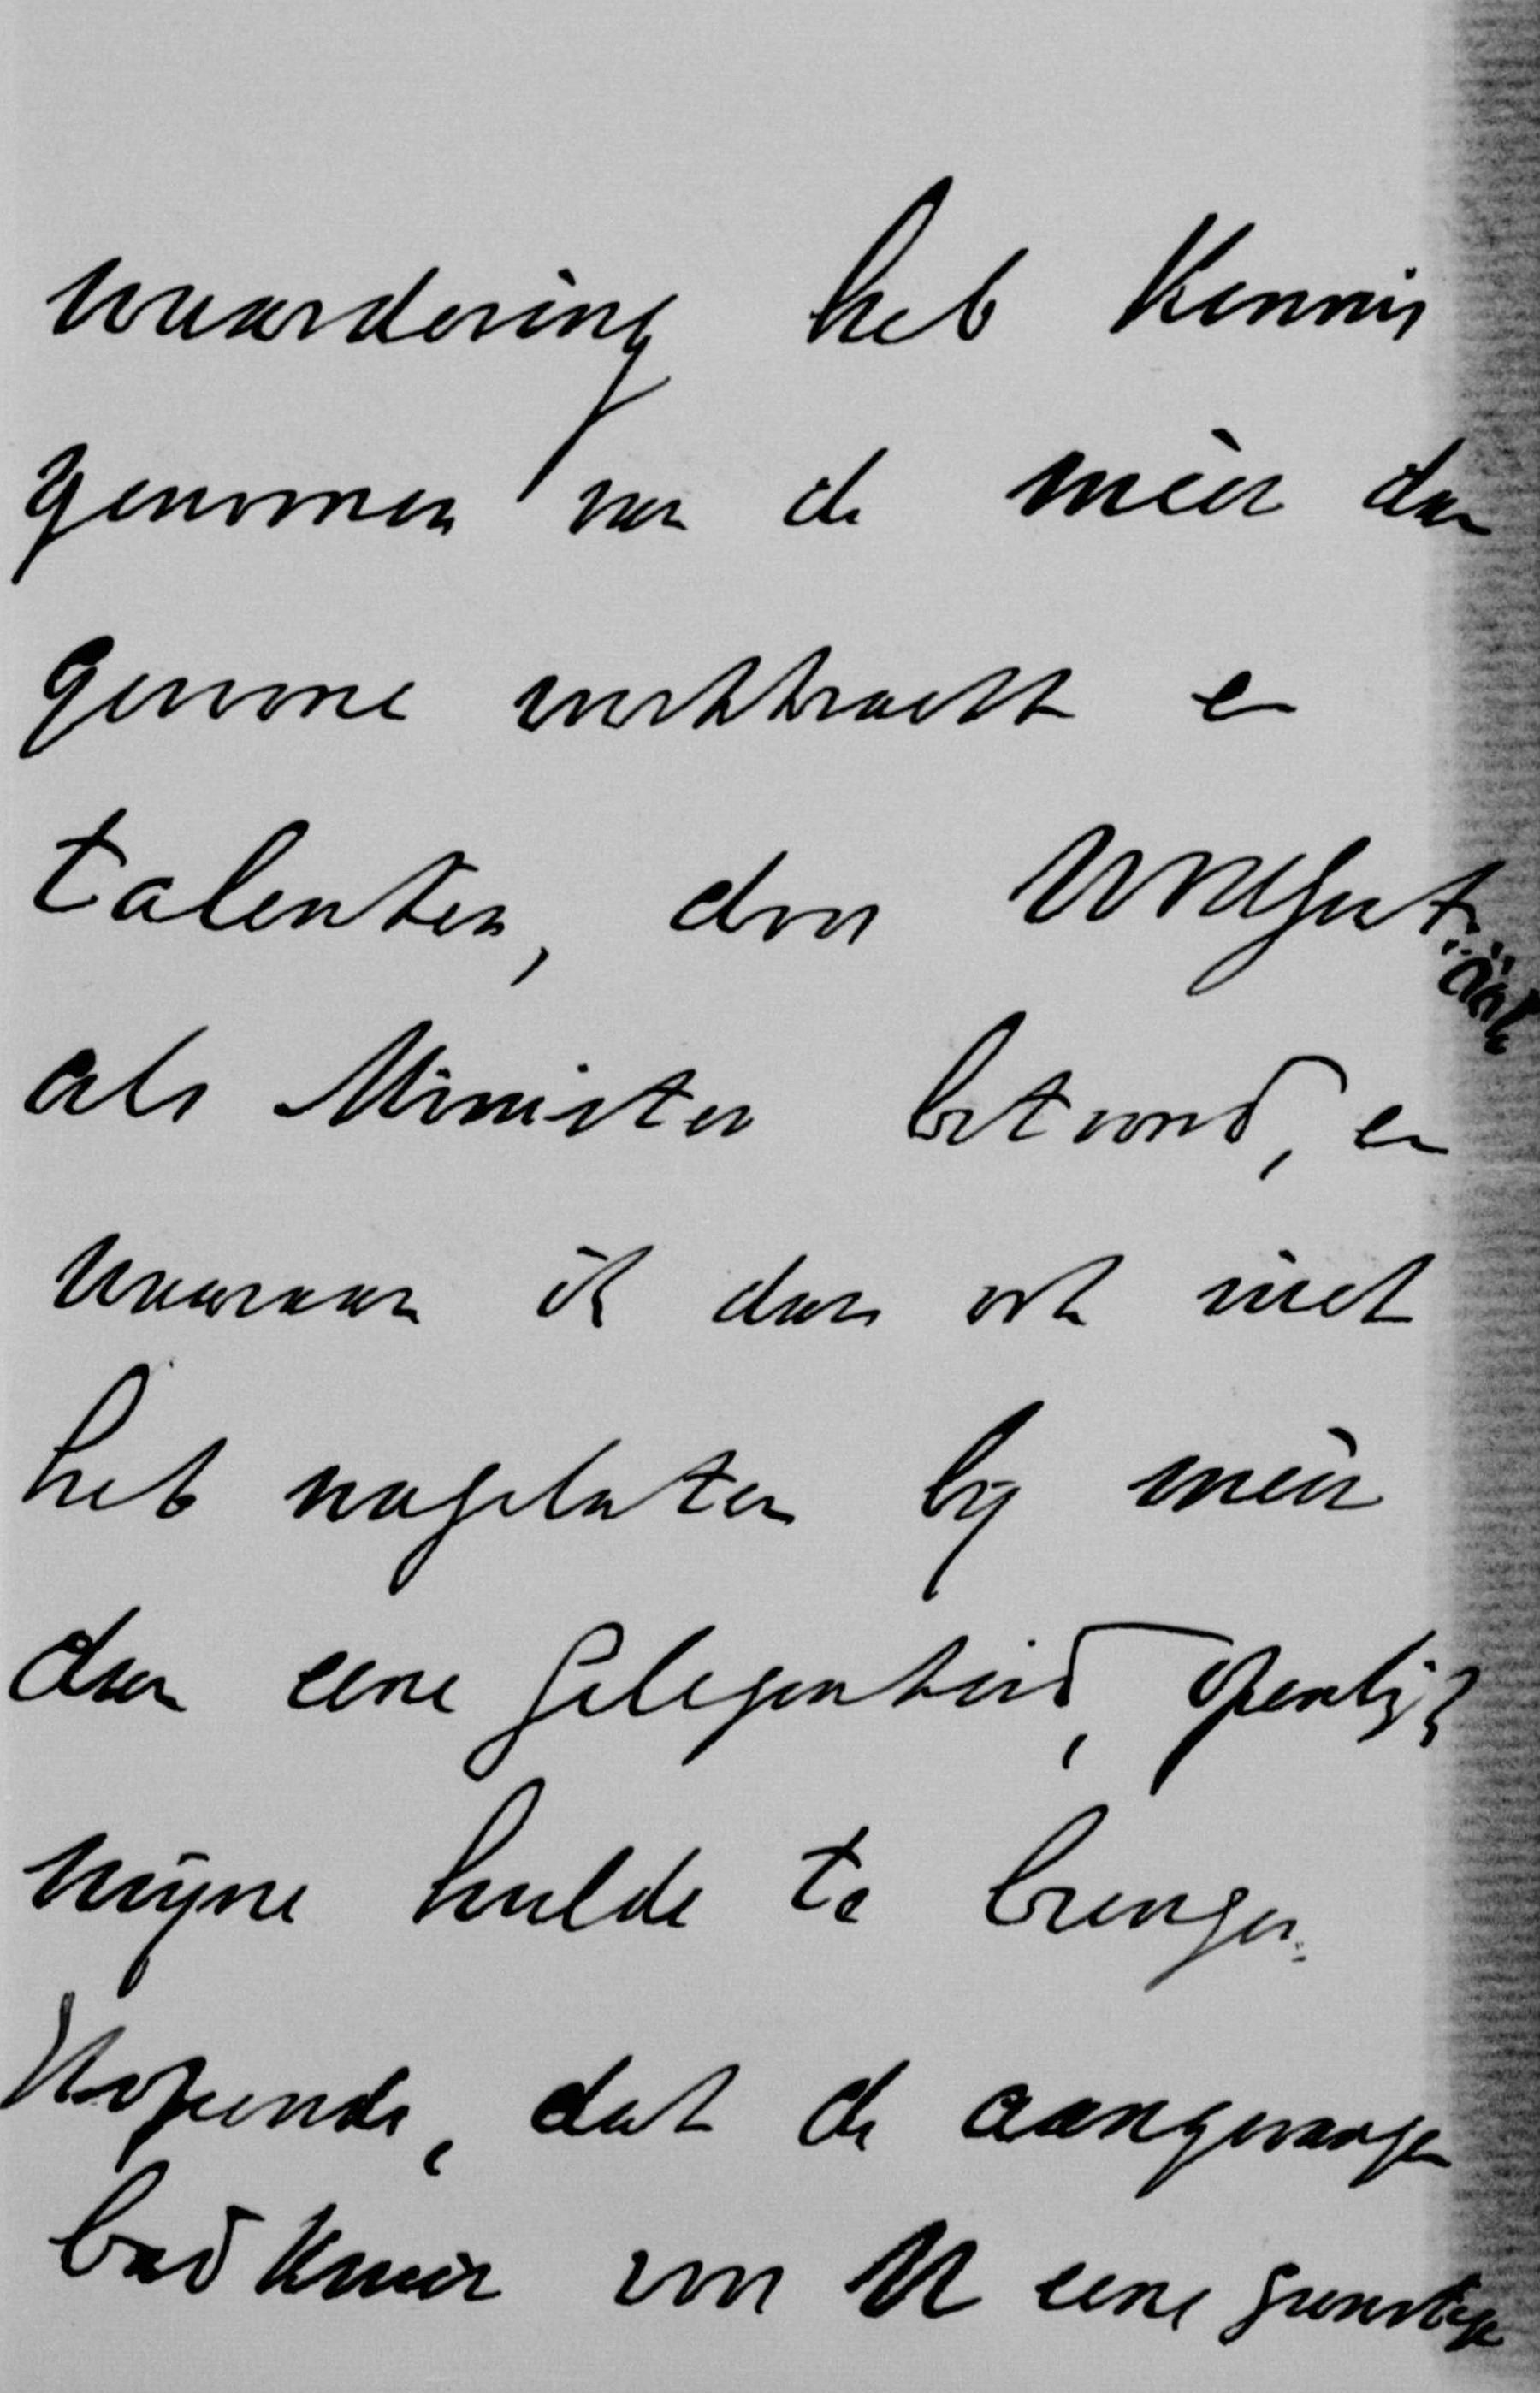 waardering heb kennis
genomen van de méér dan
gewone werkkracht en
talenten, door UWExt.
als Minister betoond, en
waaraan ik dan ook niet
heb nagelaten bij méér
dan eene gelegenheid, openlijk
mijne hulde te brengen.
Hopende, dat de aangevangen
badkuur voor U eene gunstige